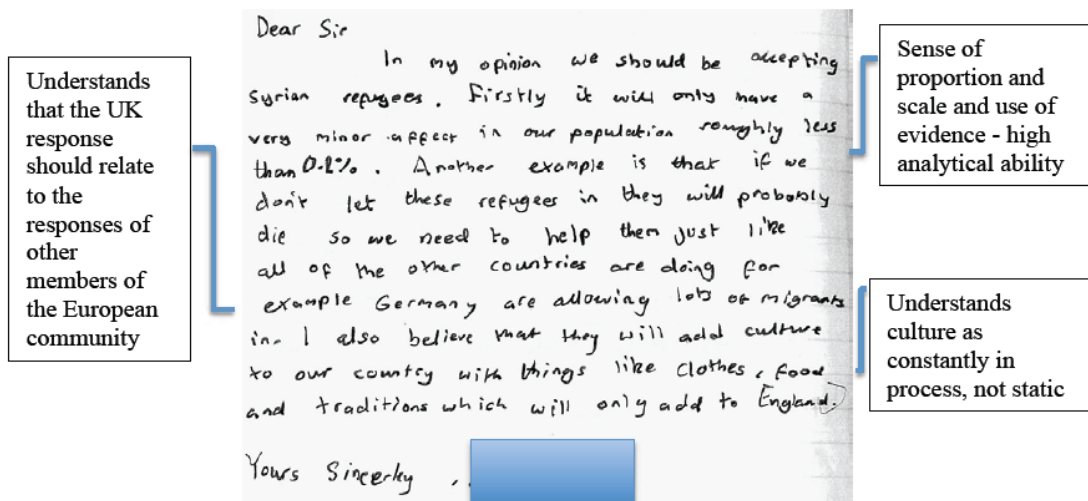 Understands
that the UK
response
should relate
to the
responses of
other
members of
the European
community
Dear Sir
In my opinion we should be accepting
Syrian refugees. Firstly it will only have a
very minor affect in our population roughly less
than 0.2%. Another example is that if we
don't let these refugees in they will probably
die so we need to help them just like
all of the other countries are doing for
example Germany are allowing lots of migrants
in. I also believe that they will add culture
to our country with things like clothes, food
and traditions which will only add to England.
Yours Sincerky
Sense of
proportion and
scale and use of
evidence - high
analytical ability
Understands
culture as
constantly in
process, not static